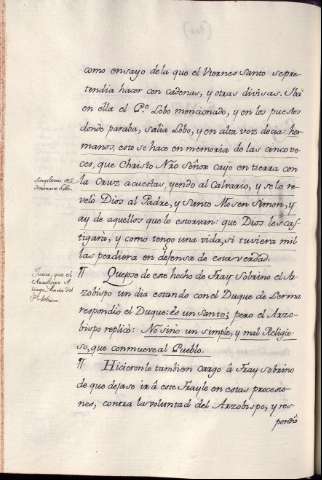 como ensayo de la que el Viernes Santo se pre-
tendia hacer con cadenas, y otras divisas. Iba
en ella el Pe. Lobo mencionado, y en los puestos
donde paraba, salia Lobo, y en alta voz decia: her-
manos, esto se hace en memoria de las cinco ve-
ces, que Christo Nro Señor cayó en tierra con
la Cruz acuestas, yendo al Calvario, y se lo re-
veló Dios al Padre, y Santo Mosen Simon; y
ay de aquellos que lo estorven: que Dios les cas-
tigaría; y como tengo una vida, si tuviera mil
las perdiera en defensa de esta verdad.
¶ Quejose de este hecho de Fray Sobrino el Ar-
zobispo un dia estando con el Duque de Lerma
respondió el Duque: Es un santo; pero el Arzo-
bispo replicó: No sino un simple, y mal Religio-
so, que conmueve al Pueblo.
¶ Hicieronle tambien cargo à Fray Sobrino
de que dejase ir à este Frayle en estas procesio-
nes, contra la voluntad del Arzobispo, y res-
pondió